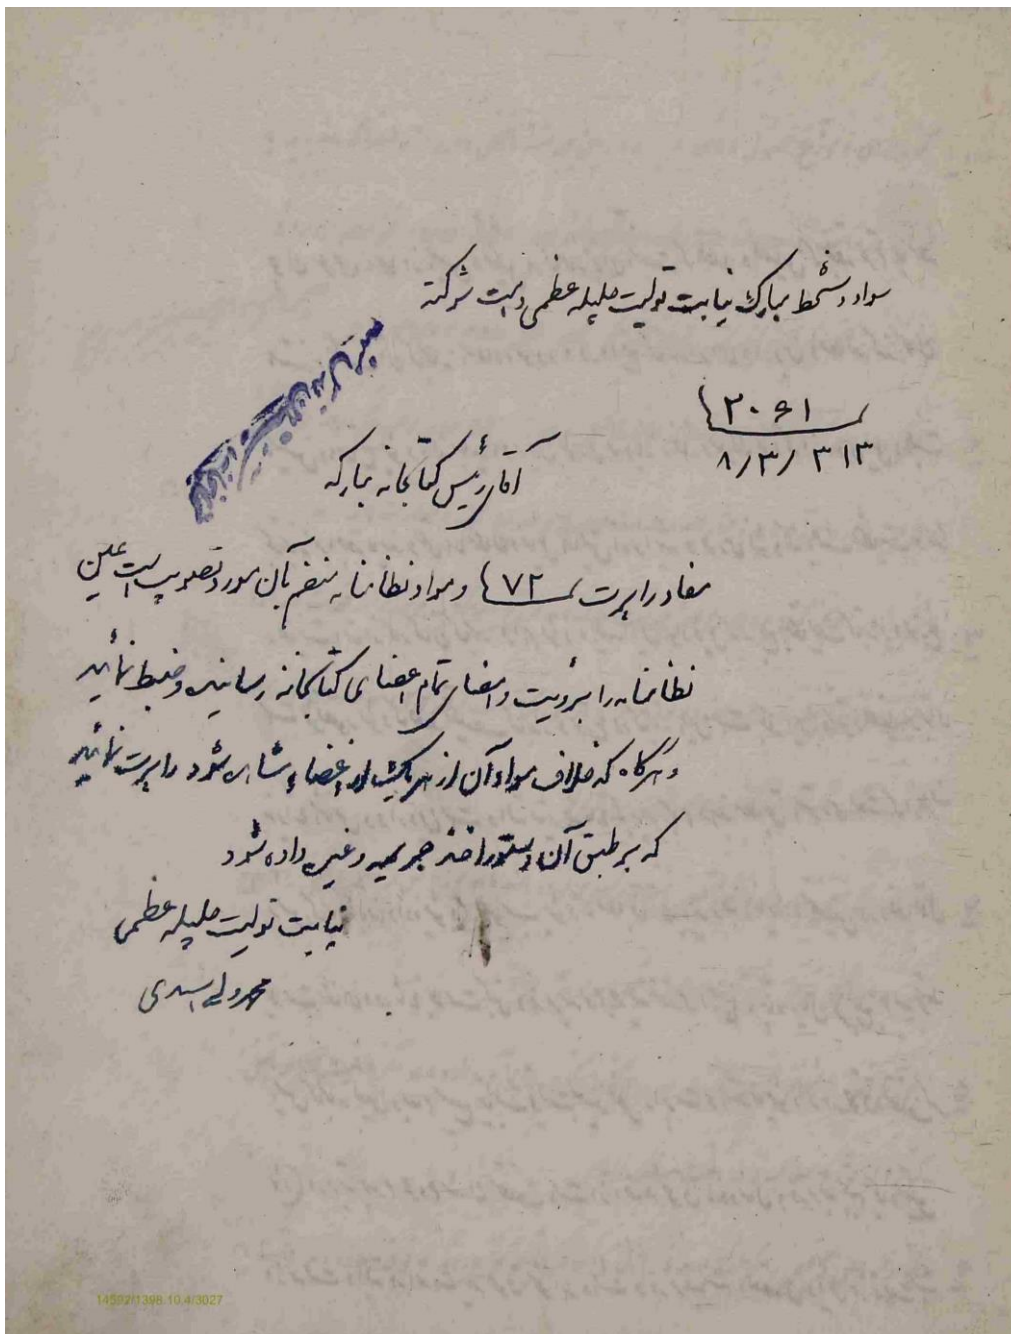 سواد دستخط مبارک نیابت تولیت جلیله عظمی دامت شوکته
۲۰۶۱
۸/۳/۳۱۳
آقای رئیس کتابخانه مبارکه
مفاد راپرت ۷۲ و مواد نظامنامه منضم بآن مورد تصویب است عین
نظامنامه را برؤیت و امضای تمام اعضای کتابخانه رسانیده ضبط نمائید
و هرگاه که خلاف مواد آن از هر یک از اعضاء مشاهده شود راپرت نمائید
که بر طبق آن دستور اخذ جریمه و غیره داده شود
نیابت تولیت جلیله عظمی
محمد ولی اسدی
14592/1398.10.4/3027